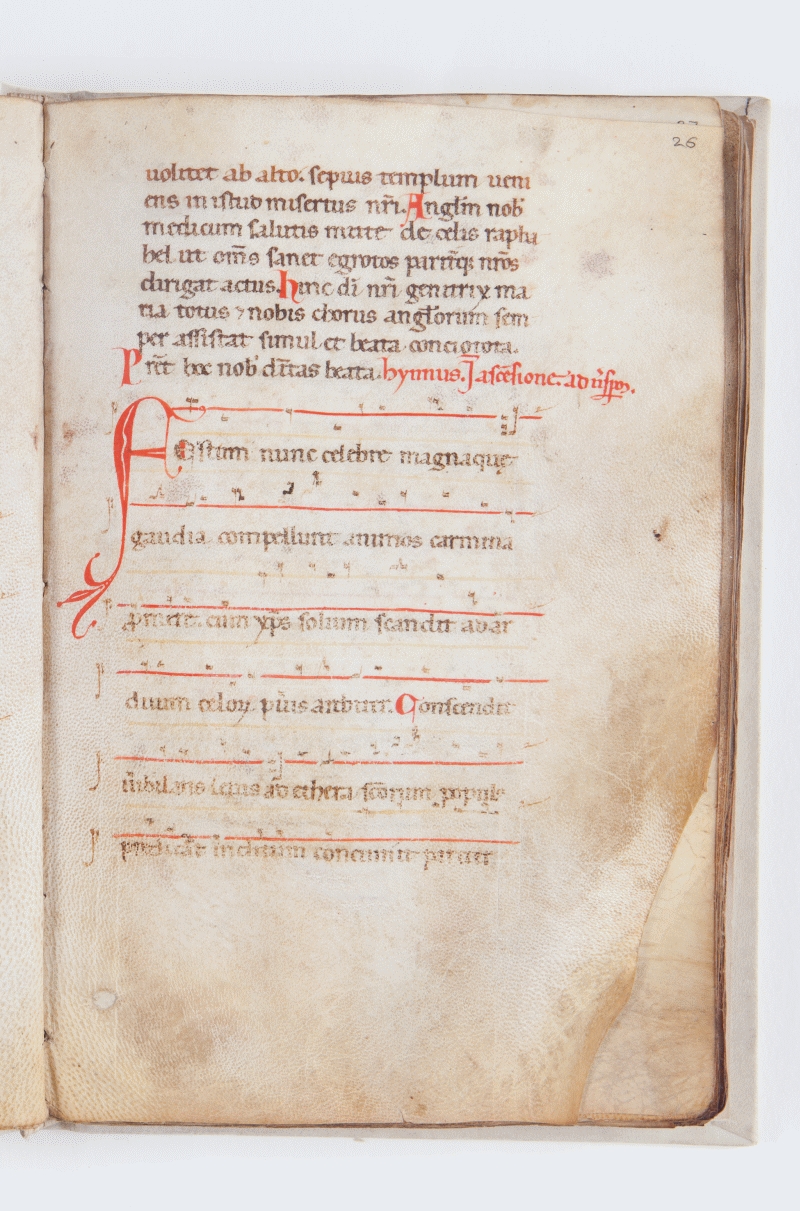 26
uolitet ab alto. sepius templum ueni
ens in istud misertus nr̃i. Anglm̃ nob̃
medicum salutis mitte de celis rapha
hel ut om̃s sanet egrotos parit̃q; nr̃os
dirigat actus. hinc dĩ nr̃i genitrix ma
ria totus ⁊ nobis chorus angl̃orum sem
per assistat simul et beata concio tota.
Pręt̃ hoc nob̃ dẽitas beata. hymnus. J ascẽsione. ad ũsp̃.
Festum nunc celebre magnaque
gaudia compellunt animos carmina
p̃mere. cum xp̃s solium scandit ad ar
duum celoꝝ pius arbiter. Conscendit
iubilans letus ad ethera sc̃orum popul
predicat inclitum concinit pariter